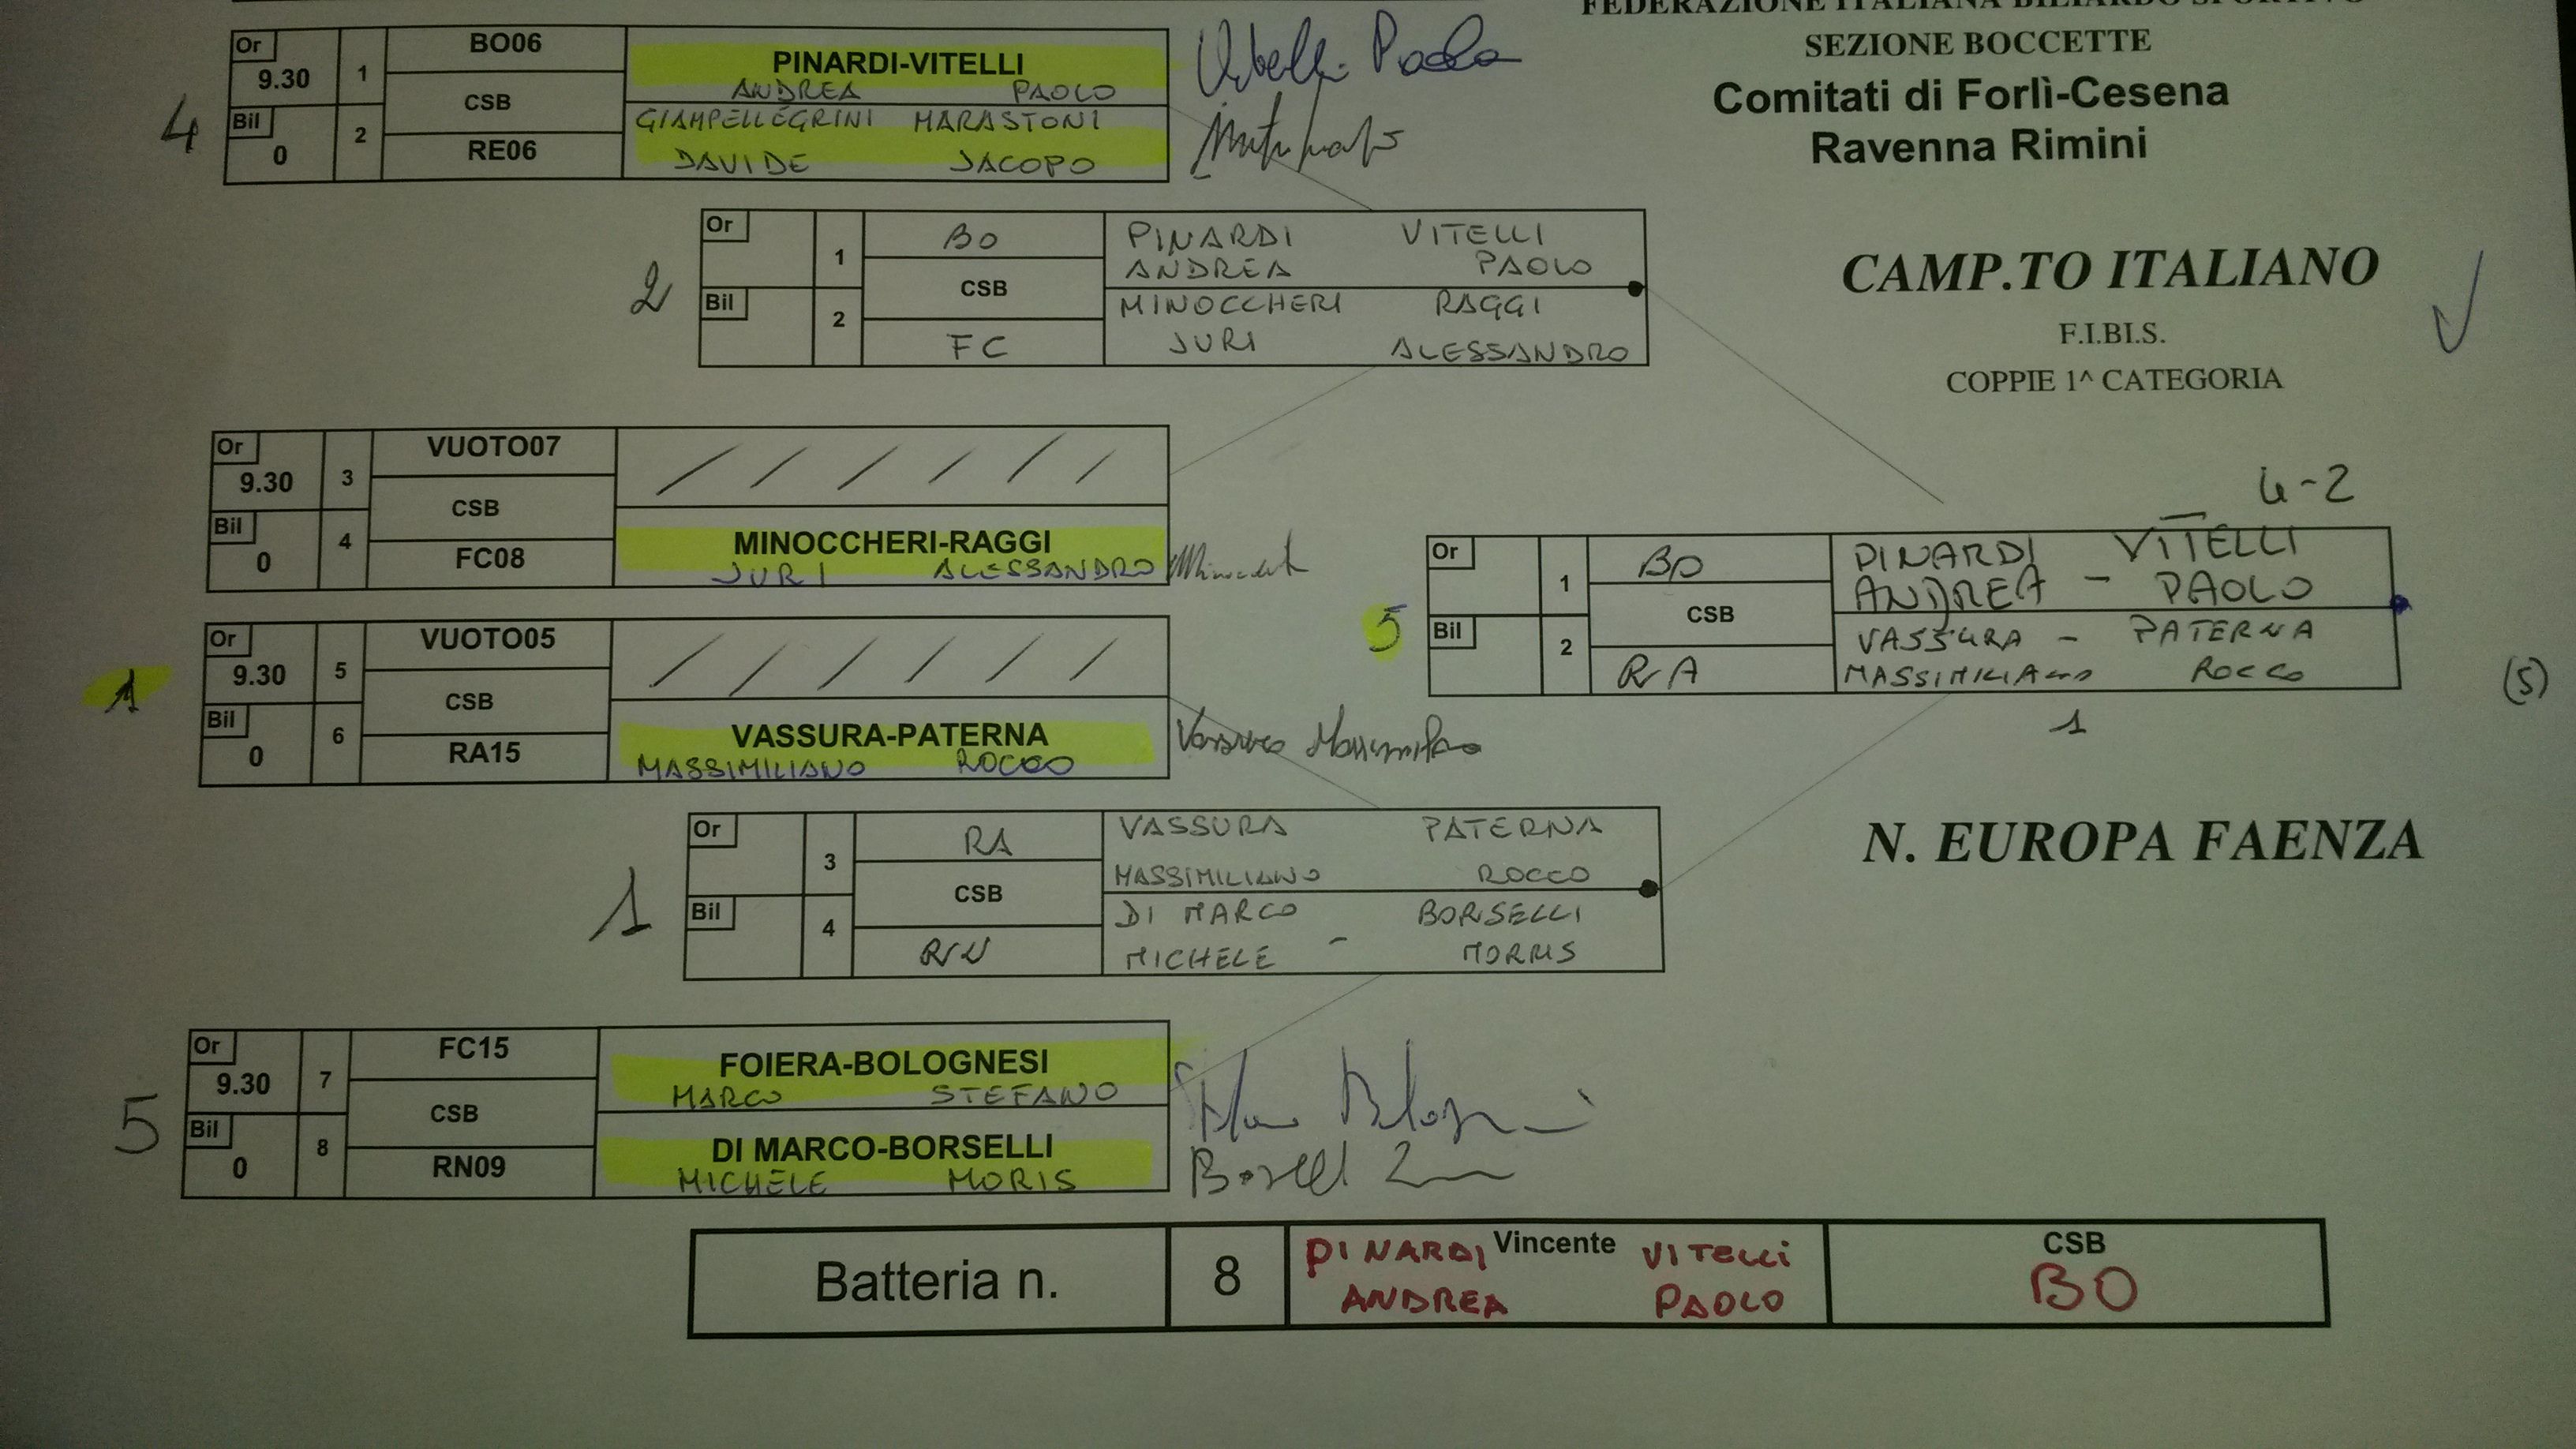 FEDERAZIONE ITALIANA BILIARDO SPORTIVO
SEZIONE BOCCETTE
Comitati di Forlì-Cesena
Ravenna Rimini
CAMP.TO ITALIANO
F.I.BI.S.
COPPIE 1^ CATEGORIA
4
Or 9.30 1 BO06 PINARDI-VITELLI
ANDREA PAOLO
CSB
Bil 0 2 RE06 GIAMPELLEGRINI MARASTONI
DAVIDE JACOPO
Vitelli Paolo
2
Or 1 BO PINARDI VITELLI
ANDREA PAOLO
CSB
Bil 2 FC MINOCCHERI RAGGI
JURI ALESSANDRO
Or 9.30 3 VUOTO07
CSB
Bil 0 4 FC08 MINOCCHERI-RAGGI
JURI ALESSANDRO
4-2
5
Or 1 BO PINARDI VITELLI
ANDREA - PAOLO
CSB
Bil 2 RA VASSURA - PATERNA
MASSIMILIANO ROCCO
1
(5)
1
Or 9.30 5 VUOTO05
CSB
Bil 0 6 RA15 VASSURA-PATERNA
MASSIMILIANO ROCCO
Vassura Massimiliano
N. EUROPA FAENZA
1
Or 3 RA VASSURA PATERNA
MASSIMILIANO ROCCO
CSB
Bil 4 RN DI MARCO BORSELLI
MICHELE - MORRIS
5
Or 9.30 7 FC15 FOIERA-BOLOGNESI
MARCO STEFANO
CSB
Bil 0 8 RN09 DI MARCO-BORSELLI
MICHELE MORIS
Batteria n. 8 Vincente CSB
PINARDI VITELLI
ANDREA PAOLO BO